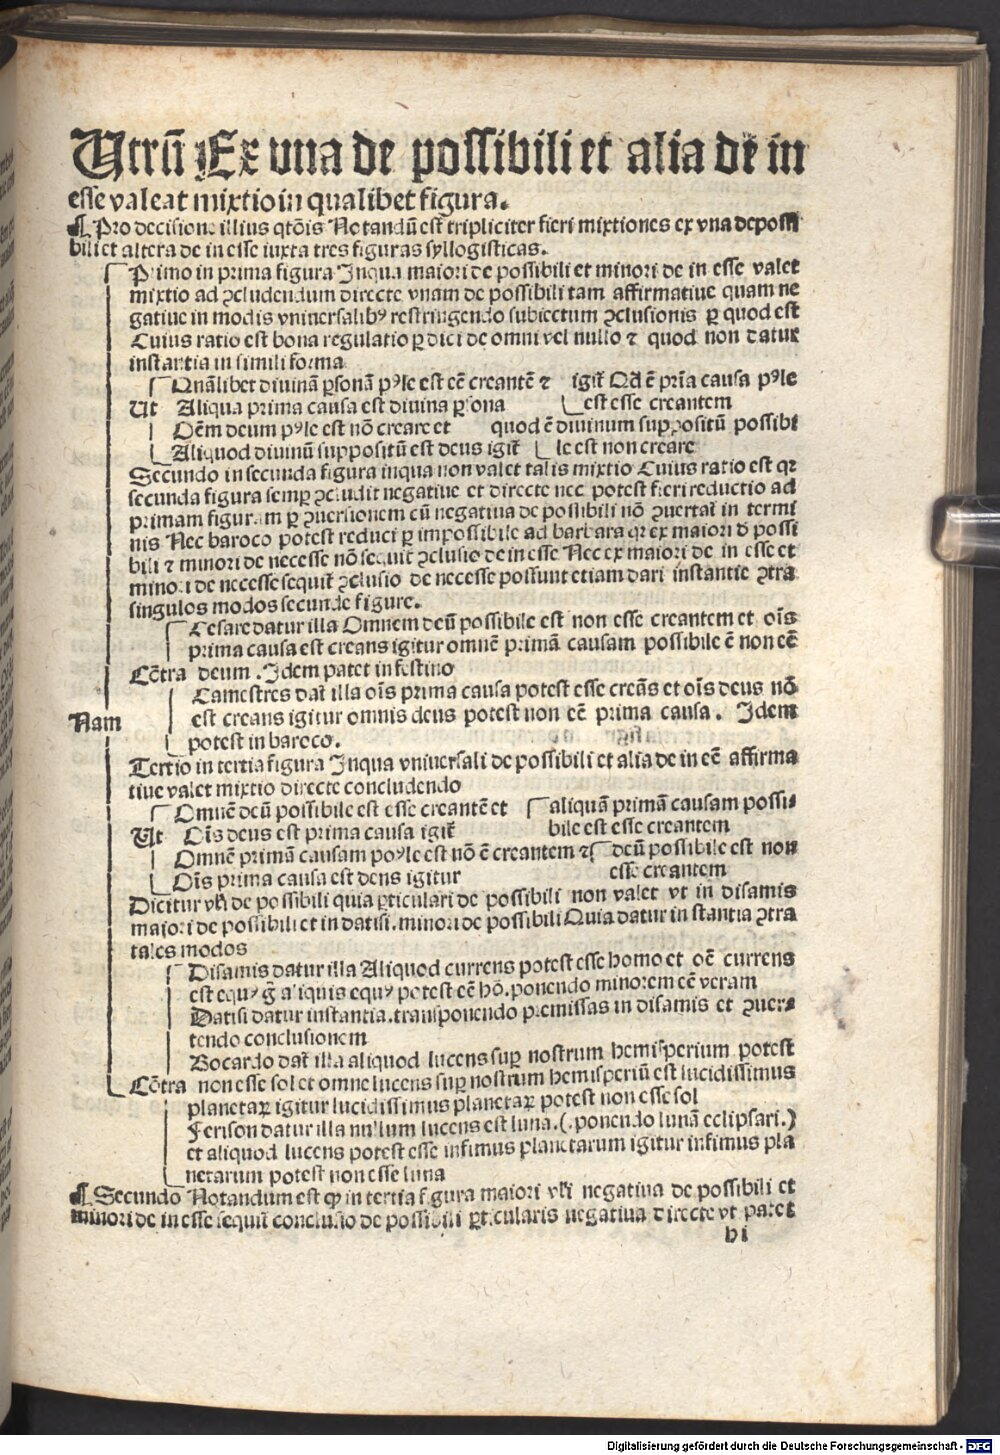 Utrū Ex vna de possibili et alia de in
esse valeat mixtio in qualibet figura.
¶ Pro decisione illius qtōis Notandū est tripliciter fieri mixtiones ex vna de possi
bili et altera de in esse iuxta tres figuras syllogisticas.
Primo in prima figura In qua maiori de possibili et minori de in esse valet
mixtio ad ꝯcludendum directe vnam de possibili tam affirmatiue quam ne
gatiue in modis vniuersalibꝰ restringendo subiectum ꝯclusionis ꝑ quod est
Cuius ratio est bona regulatio ꝑ dici de omni vel nullo ⁊ quod non datur
instantia in simili forma
Quālibet diuinā ꝑsonā pꝰle est eē creantē ⁊ igit̄ Qd̄ ē pria causa pꝰle
Ut Aliqua prima causa est diuina ꝑsona est esse creantem
Oēm deum pꝰle est nō creare et quod ē diuinum suppositū possibi
Aliquod diuinū suppositū est deus igit̄ le est non creare
Secundo in secunda figura in qua non valet talis mixtio Cuius ratio est qꝛ
secunda figura semꝑ ꝯcludit negatiue et directe nec potest fieri reductio ad
primam figuram ꝑ ꝯuersionem cū negatiua de possibili nō ꝯuertat̄ in termi
nis Nec baroco potest reduci ꝑ impossibile ad barbara qꝛ ex maiori d̄ possi
bili ⁊ minori de necesse nō sequit̄ ꝯclusio de in esse Nec ex maiori de in esse et
minori de necesse sequit̄ ꝯclusio de necesse possunt etiam dari instantie ꝯtra
singulos modos secunde figure.
Cesare datur illa Omnem deū possibile est non esse creantem et oīs
prima causa est creans igitur omnē primā causam possibile ē non eē
Cōtra deum. Idem patet in festino
Camestres dat̄ illa oīs prima causa potest esse creās et oīs deus nō
Nam est creans igitur omnis deus potest non eē prima causa. Idem
potest in baroco.
Tertio in tertia figura In qua vniuersali de possibili et alia de in eē affirma
tiue valet mixtio directe concludendo
Omnē deū possibile est esse creantē et aliquā primā causam possi-
Ut Oīs deus est prima causa igit̄ bile est esse creantem
Omnē primā causam poꝰle est nō ē creantem ⁊ deū possibile est non
Oīs prima causa est deus igitur esse creantem
Dicitur vl̄i de possibili quia ꝑticulari de possibili non valet vt in disamis
maiori de possibili et in datisi. minori de possibili Quia datur instantia ꝯtra
tales modos
Disamis datur illa Aliquod currens potest esse homo et oē currens
est equꝰ ḡ aliquis equꝰ potest eē hō. ponendo minorem eē veram
Datisi datur instantia. transponendo premissas in disamis et ꝯuer-
tendo conclusionem
Bocardo dat̄ illa aliquod lucens suꝑ nostrum hemisperium potest
Cōtra non esse sol et omne lucens suꝑ nostrum hemisperiū est lucidissimus
planetaꝝ igitur lucidissimus planetaꝝ potest non esse sol
Ferison datur illa nullum lucens est luna. (. ponendo lunā eclipsari.)
et aliquod lucens potest esse infimus planetarum igitur infimus pla
netarum potest non esse luna
¶ Secundo Notandum est ꝙ in tertia figura maiori vl̄i negatiua de possibili et
minori de in esse sequit̄ conclusio de possibili ꝑticularis negatiua directe vt patet
bi
Digitalisierung gefördert durch die Deutsche Forschungsgemeinschaft - DFG